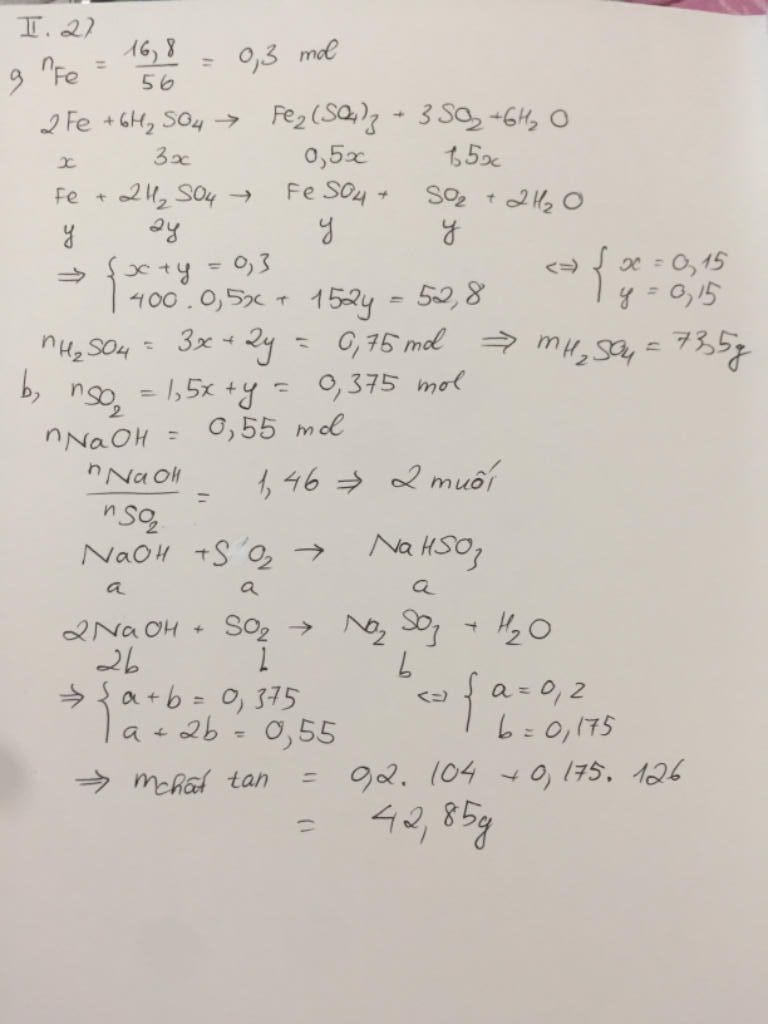 II. 2)
a) nFe = 16,8/56 = 0,3 mol
2Fe + 6H2SO4 → Fe2(SO4)3 + 3SO2 + 6H2O
x 3x 0,5x 1,5x
Fe + 2H2SO4 → FeSO4 + SO2 + 2H2O
y 2y y y
⇒ { x + y = 0,3 ⇔ { x = 0,15
400 . 0,5x + 152y = 52,8 y = 0,15
nH2SO4 = 3x + 2y = 0,75 mol ⇒ mH2SO4 = 73,5g
b, nSO2 = 1,5x + y = 0,375 mol
nNaOH = 0,55 mol
nNaOH/nSO2 = 1,46 ⇒ 2 muối
NaOH + SO2 → NaHSO3
a a a
2NaOH + SO2 → Na2SO3 + H2O
2b b b
⇒ { a + b = 0,375 ⇔ { a = 0,2
a + 2b = 0,55 b = 0,175
⇒ mchất tan = 0,2. 104 + 0,175. 126
= 42,85g